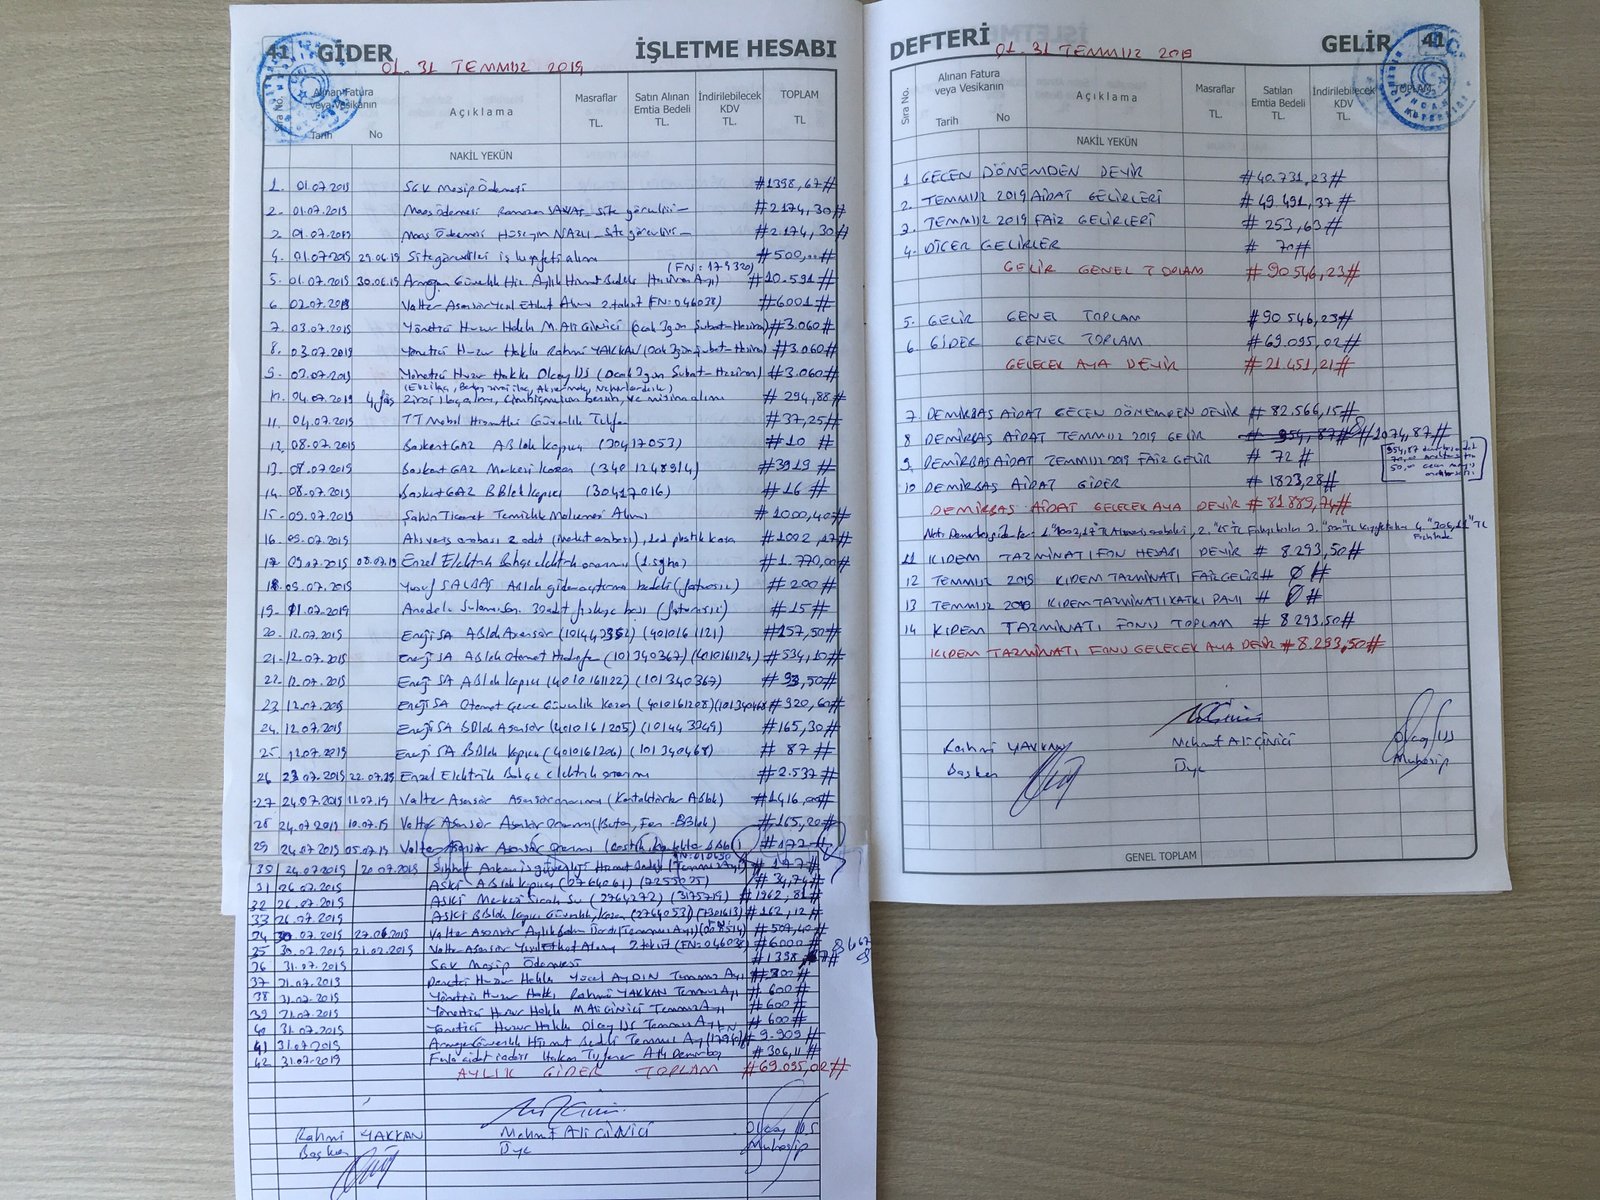 41 GİDER İŞLETME HESABI
01-31 TEMMUZ 2019
Sıra No. Alınan Fatura veya Vesikanın Açıklama Masraflar TL. Satın Alınan Emtia Bedeli TL. İndirilebilecek KDV TL. TOPLAM TL
Tarih No
NAKİL YEKÜN
1. 01.07.2019 SGK Maaşip Ödemesi #1398,67#
2. 01.07.2019 Maaş ödemesi Ramazan site görevlisi #2174,30#
3. 01.07.2019 Maaş Ödemesi Hüseyin NAZLI site görevlisi #2174,30#
4. 01.07.2019 29.06.19 Site görevlileri iş kıyafeti alımı #500,00#
(FN: 179320)
5. 01.07.2019 30.06.19 Güvenlik Hiz. Aylık Hizmet Bedeli (Haziran Ayı) #10.591#
6 02.07.2019 Valter Asansör Yeşil Etiket Alımı 2.taksit (FN:046038) #6001#
7. 03.07.2019 Yönetici Huzur Hakkı M.Ali GİNİCİ (Ocak 3gün Şubat-Haziran) #3.060#
8. 03.07.2019 Yönetici Huzur Hakkı Rahmi YAKKAN (Ocak 3gün Şubat-Haziran) #3.060#
9. 03.07.2019 Yönetici Huzur Hakkı Olcay US (Ocak 3gün Şubat-Haziran) #3.060#
04.07.2019 4 fiş Zirai ilaç alımı, benzin, ve alımı #294,88#
11. 04.07.2019 TT Mobil Hizmetleri Güvenlik Telefon #37,25#
12. 08.07.2019 Başkent GAZ A Blok Kapıcı (30417053) #10 #
13. 08.07.2019 Başkent GAZ Merkezi Kazan (3401248914) #3919 #
14. 08.07.2019 Başkent GAZ B Blok Kapıcı (30417016) #16 #
15. 09.07.2019 Şahin Ticaret Temizlik Malzemesi Alımı #1000,40#
16. 09.07.2019 Alışveriş arabası 2 adet (market arabası), 1 ad plastik kasa #1002,17#
17 09.07.2019 08.07.19 Enzel Elektrik Bahçe elektrik onarımı #1.770,00#
18. 09.07.2019 Yusuf SALBAŞ A blok gider açtırma bedeli (faturasız) #200 #
19. 11.07.2019 Anadolu Sulama San. 30 adet fıskiye başı (faturasız) #15 #
20. 12.07.2019 Enerji SA A Blok Asansör (101440362) (4010161121) #157,50#
21. 12.07.2019 Enerji SA A Blok Otomat Hidrofor (101340367) (4010161124) #534,10#
22. 12.07.2019 Enerji SA A Blok Kapıcı (4010161122) (101340367) # 93,50#
23 12.07.2019 Enerji SA Otomat Çevre Güvenlik Kazan (4010161208) (101340468) #920,60#
24. 12.07.2019 Enerji SA B Blok Asansör (4010161205) (101443949) #165,30#
25 12.07.2019 Enerji SA B Blok Kapıcı (4010161206) (101340468) # 87 #
26 23.07.2019 22.07.19 Enzel Elektrik Bahçe elektrik onarımı #2.537#
27 24.07.2019 11.07.19 Valter Asansör Asansör onarımı (Kontaktörler A Blok) #1416,00#
28 24.07.2019 10.07.19 Valter Asansör Asansör Onarımı (Buton, Fan - B Blok) #165,20#
29 24.07.2019 05.07.19 Valter Asansör Asansör Onarımı #172 #
FN:010650
30. 24.07.2019 20.07.2019 Ankara iş güvenliği Hizmet Bedeli (Temmuz Ayı) # 177#
31 26.07.2019 ASKİ A Blok Kapıcı (2764061) (7255025) # 34,74#
32 26.07.2019 ASKİ Merkezi Sıcak Su (2764272) (3175719) #1962,81#
33 26.07.2019 ASKİ B Blok Kapıcı Güvenlik, Kazan (2764053) (7301613) #162,12#
34 30.07.2019 27.06.2019 Valter Asansör Aylık Bakım (Temmuz Ayı) (008514) #507,40#
35 30.07.2019 21.02.2019 Valter Asansör Yeşil Etiket Alımı 2 taksit (FN:046038) #6000#
36 31.07.2019 SGK Maaşip Ödemesi #1398,67#
37 31.07.2019 Denetçi Huzur Hakkı Yücel AYDIN Temmuz Ayı #300#
38 31.07.2019 Yönetici Huzur Hakkı Rahmi YAKKAN Temmuz Ayı #600#
39 31.07.2019 Yönetici Huzur Hakkı M.Ali GİNİCİ Temmuz Ayı #600#
40 31.07.2019 Yönetici Huzur Hakkı Olcay US Temmuz Ayı #600#
41 31.07.2019 Güvenlik Hizmet Bedeli Temmuz Ayı #9.909#
42 31.07.2019 Fazla aidat iadesi Hakan #306,11#
AYLIK GİDER TOPLAM #69.095,02#
Rahmi YAKKAN Mehmet Ali GİNİCİ Olcay US
Başkan Üye Muhasip
DEFTERİ GELİR 41
01-31 TEMMUZ 2019
Sıra No. Alınan Fatura veya Vesikanın Açıklama Masraflar TL. Satılan Emtia Bedeli TL. İndirilebilecek KDV TL. TOPLAM
Tarih No
NAKİL YEKÜN
1 GEÇEN DÖNEMDEN DEVİR #40.731,23#
2. TEMMUZ 2019 AİDAT GELİRLERİ #49.491,37#
3. TEMMUZ 2019 FAİZ GELİRLERİ # 253,63#
4. DİĞER GELİRLER # 70#
GELİR GENEL TOPLAM #90.546,23#
5. GELİR GENEL TOPLAM #90.546,23#
6 GİDER GENEL TOPLAM #69.095,02#
GELECEK AYA DEVİR #21.451,21#
7 DEMİRBAŞ AİDAT GEÇEN DÖNEMDEN DEVİR #82.566,15#
8 DEMİRBAŞ AİDAT TEMMUZ 2019 GELİR # 954,87 # #1074,87#
9. DEMİRBAŞ AİDAT TEMMUZ 2019 FAİZ GELİR # 72 #
10 DEMİRBAŞ AİDAT GİDER # 1823,28#
DEMİRBAŞ AİDAT GELECEK AYA DEVİR #81889,74#
11 KIDEM TAZMİNATI FON HESABI DEVİR # 8.293,50#
12 TEMMUZ 2019 KIDEM TAZMİNATI FAİZ GELİR # 0 #
13 TEMMUZ 2019 KIDEM TAZMİNATI KATKI PAYI # 0 #
14 KIDEM TAZMİNATI FONU TOPLAM # 8.293,50#
KIDEM TAZMİNATI FONU GELECEK AYA DEVİR #8.293,50#
Rahmi YAKKAN Mehmet Ali GİNİCİ Olcay US
Başkan Üye Muhasip
GENEL TOPLAM